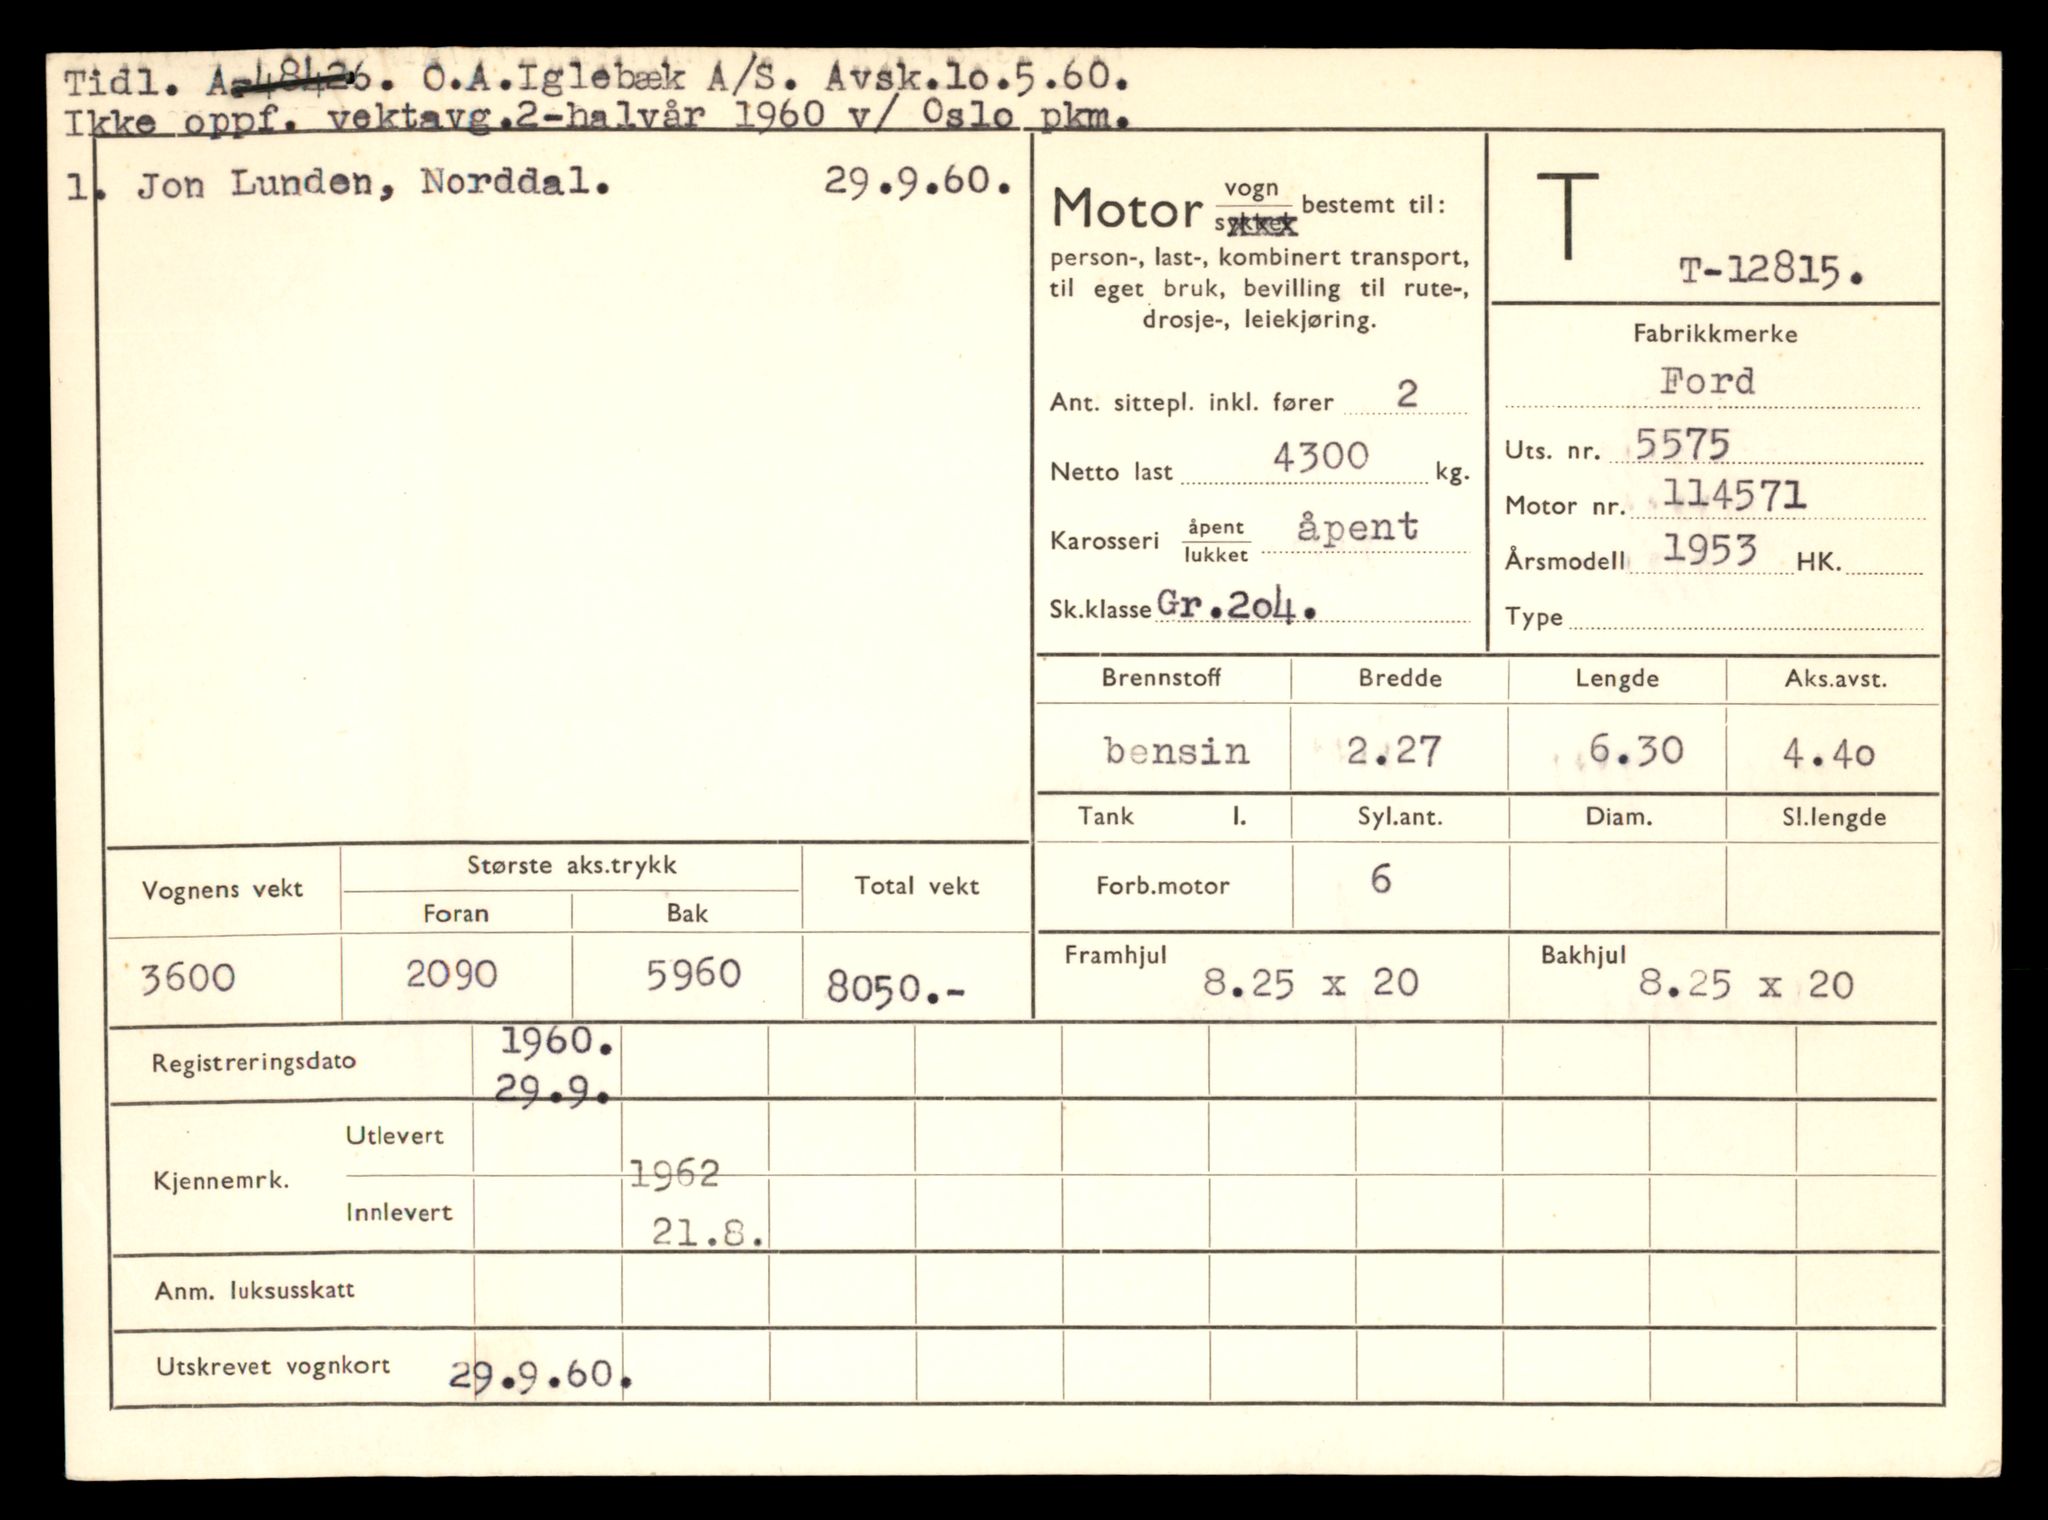 Tidl. A-48426. O.A.Iglebæk A/S. Avsk.lo.5.60.
Ikke oppf. vektavg.2-halvår 1960 v/ Oslo pkm.
1. Jon Lunden, Norddal. 29.9.60.
Motor vogn/sykkel bestemt til:
person-, last-, kombinert transport,
til eget bruk, bevilling til rute-,
drosje-, leiekjøring.
Ant. sittepl. inkl. fører 2
Netto last 4300 kg.
Karosseri åpent/lukket åpent
Sk.klasse Gr.2o4.
T
T-12815.
Fabrikkmerke
Ford
Uts. nr. 5575
Motor nr. 114571
Årsmodell 1953 HK.
Type
Brennstoff Bredde Lengde Aks.avst.
bensin 2.27 6.30 4.4o
Tank l. Syl.ant. Diam. Sl.lengde
Forb.motor 6
Framhjul 8.25 x 20 Bakhjul 8.25 x 20
Vognens vekt Største aks.trykk Total vekt
Foran Bak
3600 2090 5960 8050.-
Registreringsdato 1960.
29.9.
Kjennemrk. Utlevert
1962
Innlevert 21.8.
Anm. luksusskatt
Utskrevet vognkort 29.9.60.